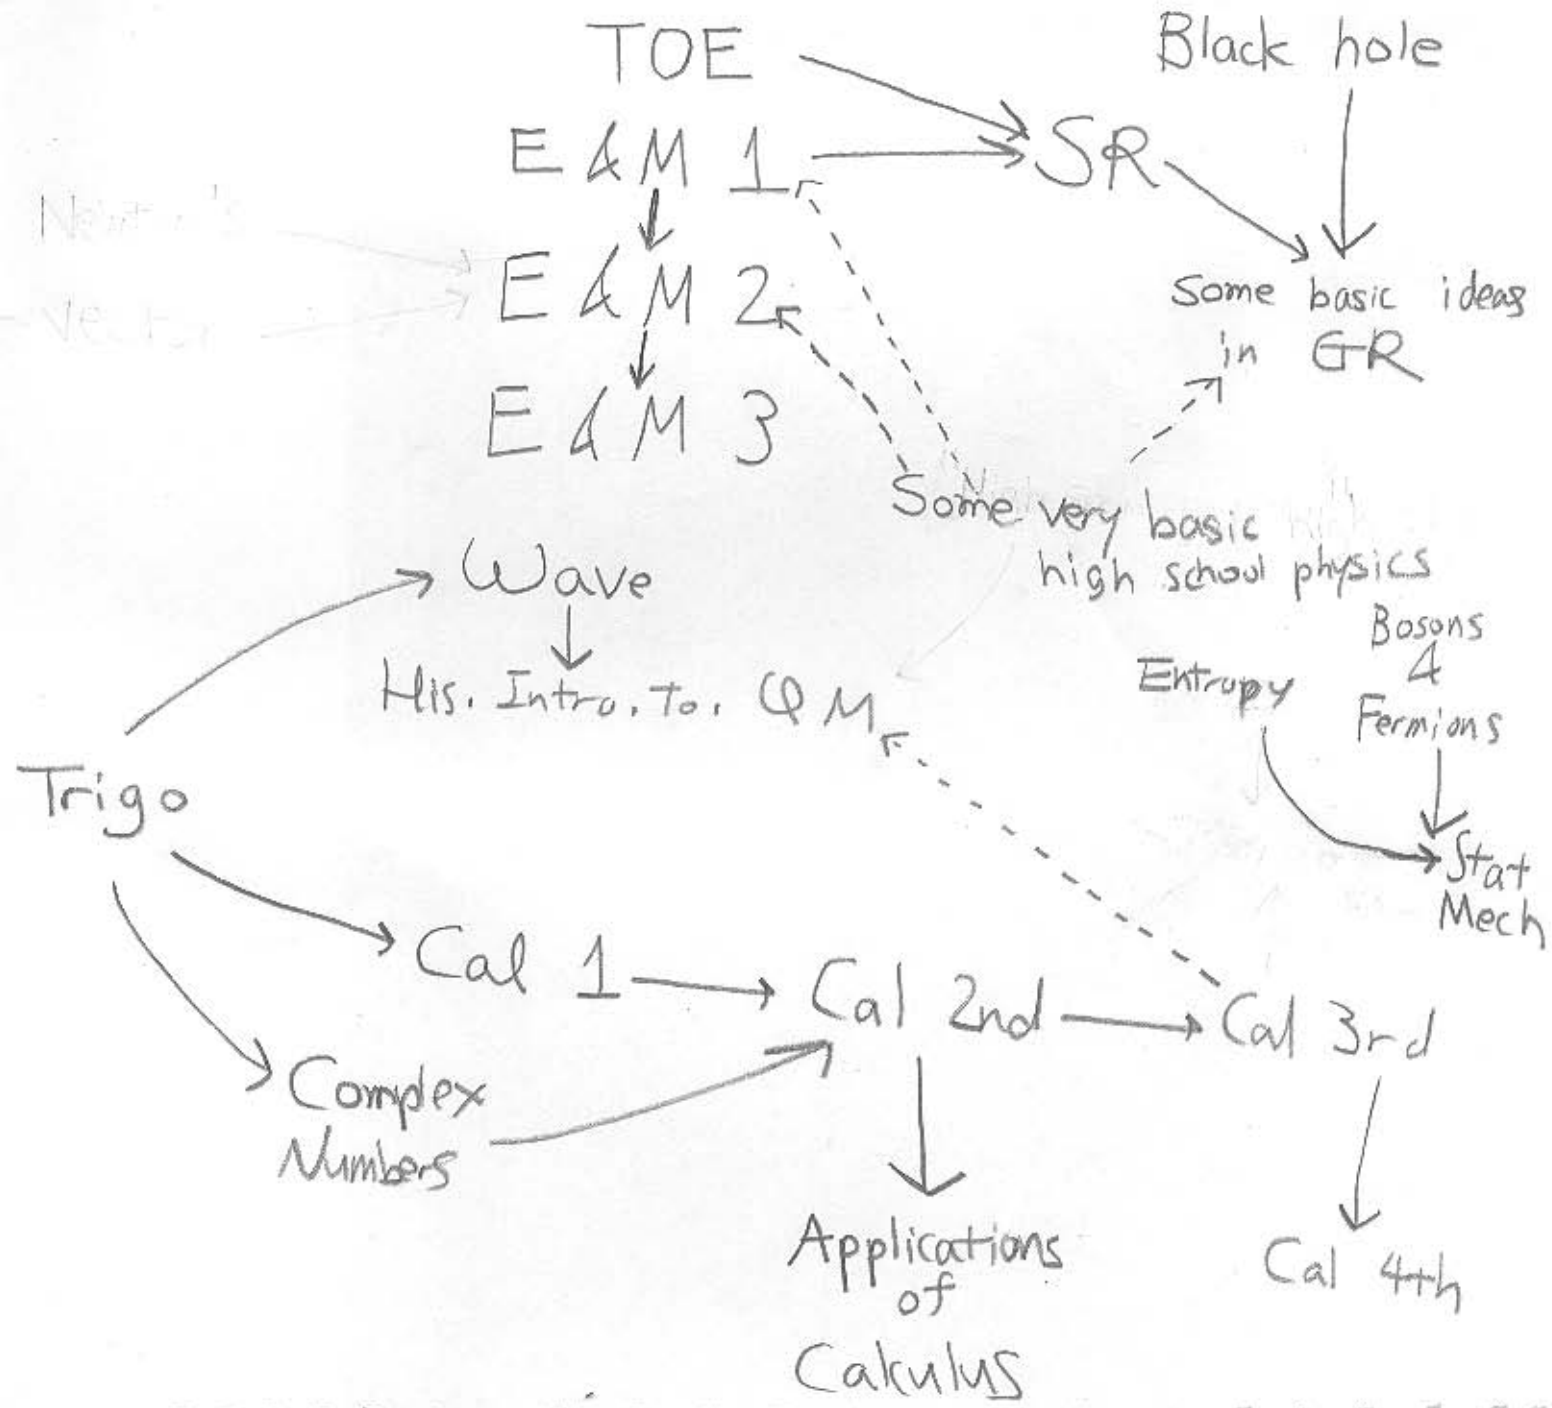 TOE
Black hole
E & M 1
SR
E & M 2
Some basic ideas
in GR
E & M 3
Some very basic
high school physics
Wave
His. Intro. To. QM
Entrupy
Bosons
&
Fermions
Trigo
Stat
Mech
Cal 1
Cal 2nd
Cal 3rd
Complex
Numbers
Applications
of
Calculus
Cal 4th